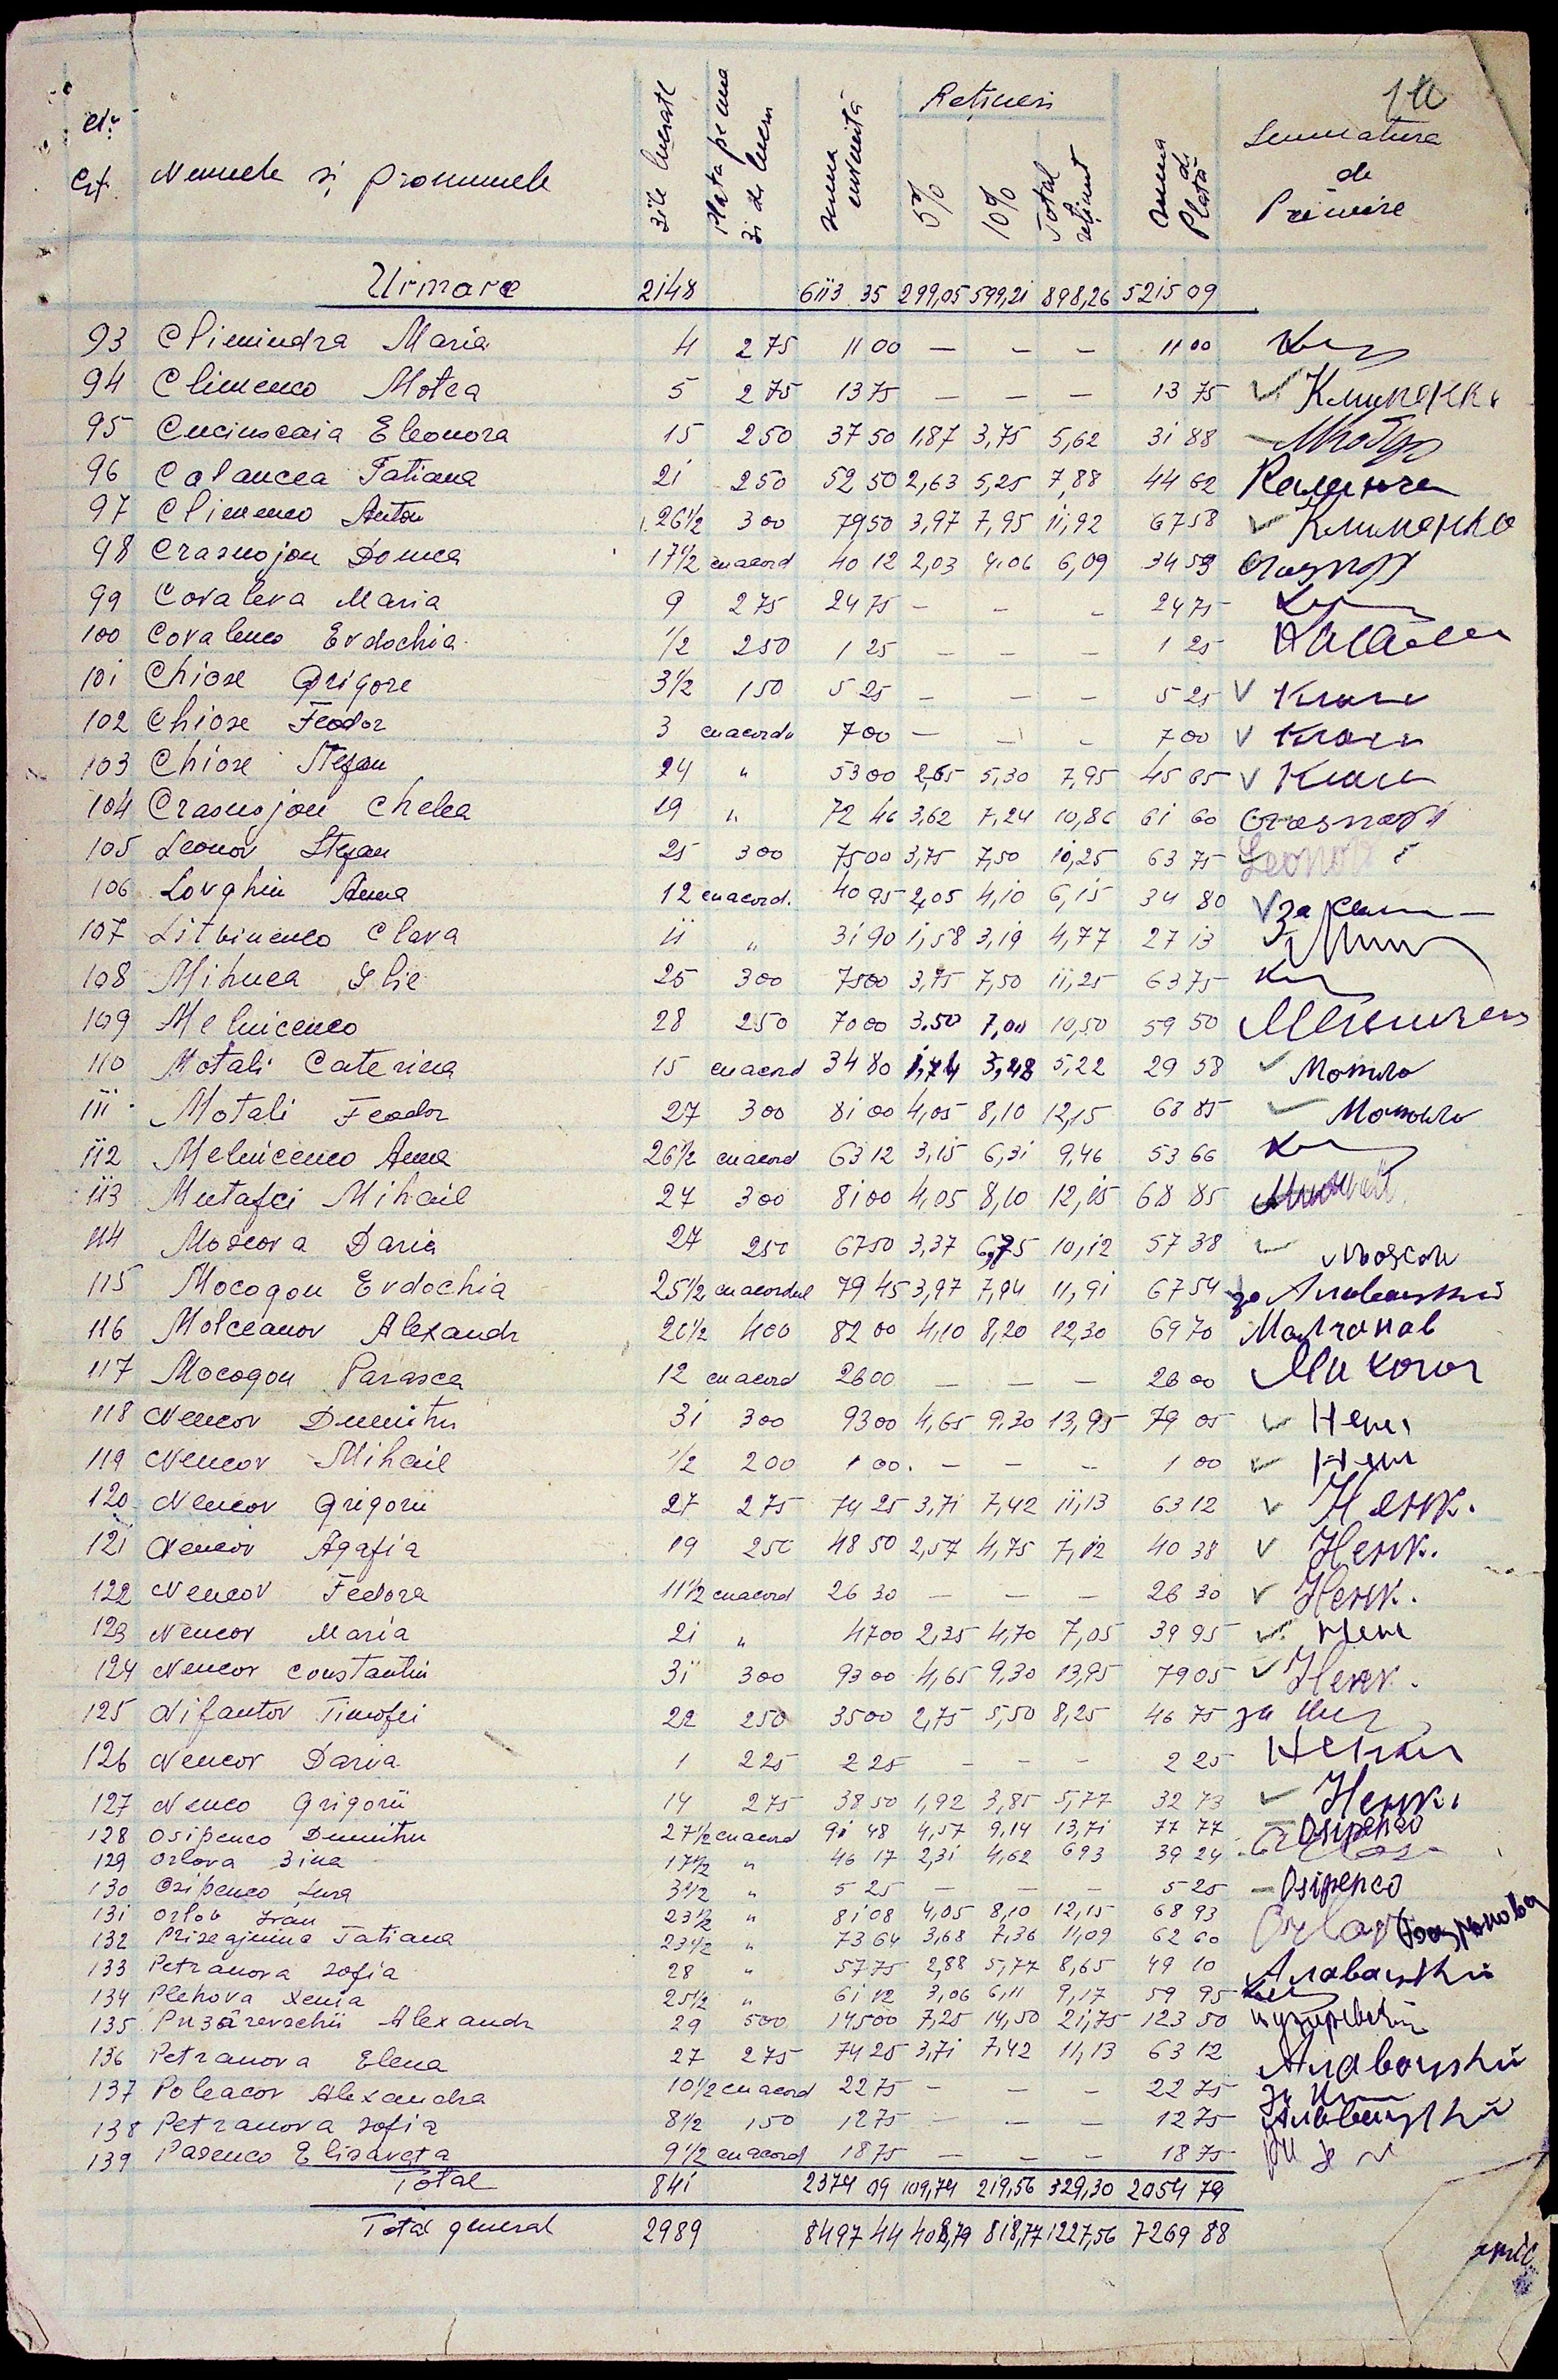 Nr. Crt.
Numele și pronumele
zile lucrate
Plata pe una zi de lucru
Suma cuvenită
Rețineri
5%
10%
Total reținut
Suma de Plată
Semnatura de Primire
Urmare 2148 6113 35 299,05 599,21 898,26 5215 09
93 Climindra Maria 4 2 75 11 00 — — — 11 00
94 Climenco Motrea 5 2 75 13 75 — — — 13 75 Клименко
95 Cucinscaia Eleonora 15 2 50 37 50 1,87 3,75 5,62 31 88
96 Calancea Tatiana 21 2 50 52 50 2,63 5,25 7,88 44 62
97 Climenco Anton 26 1/2 3 00 79 50 3,97 7,95 11,92 67 58 Клименко
98 Crasnojon Domca 17 1/2 cu acord 40 12 2,03 4,06 6,09 34 53
99 Covaleva Maria 9 2 75 24 75 — — — 24 75
100 Covalenco Evdochia 1/2 2 50 1 25 — — — 1 25
101 Chiose Grigore 3 1/2 1 50 5 25 — — — 5 25
102 Chiose Feodor 3 cu acordu 7 00 — — — 7 00
103 Chiose Ștefan 24 " 53 00 2,65 5,30 7,95 45 05
104 Crasnojon Chelea 19 " 72 46 3,62 7,24 10,86 61 60
105 Leonov Ștefan 25 3 00 75 00 3,75 7,50 10,25 63 75 Leonov
106 Lovghin Anna 12 cu acord. 40 95 2,05 4,10 6,15 34 80
107 Litvinenco Clava 11 " 31 90 1,58 3,19 4,77 27 13
108 Mihnea Ilie 25 3 00 75 00 3,75 7,50 11,25 63 75
109 Melnicenco 28 2 50 70 00 3,50 7,00 10,50 59 50
110 Motali Caterina 15 cu acord 34 80 1,74 3,48 5,22 29 58
111 Motali Feodor 27 3 00 81 00 4,05 8,10 12,15 68 85
112 Melnicenco Anna 26 1/2 cu acord 63 12 3,15 6,31 9,46 53 66
113 Mutafci Mihail 27 3 00 81 00 4,05 8,10 12,15 68 85
114 Moscova Daria 27 2 50 67 50 3,37 6,75 10,12 57 38
115 Mocogon Evdochia 25 1/2 cu acordul 79 45 3,97 7,94 11,91 67 54
116 Molceanov Alexandr 20 1/2 4 00 82 00 4,10 8,20 12,30 69 70
117 Mocogon Parasca 12 cu acord 26 00 — — — 26 00
118 Nencov Dumitru 31 3 00 93 00 4,65 9,30 13,95 79 05
119 Nencov Mihail 1/2 2 00 1 00. — — — 1 00
120 Nencov Grigorii 27 2 75 74 25 3,71 7,42 11,13 63 12 Ненк.
121 Nencov Agafia 19 2 50 48 50 2,57 4,75 7,12 40 38 Ненк.
122 Nencov Fedora 11 1/2 cu acord 26 30 — — — 26 30 Ненк.
123 Nencov Maria 21 " 47 00 2,35 4,70 7,05 39 95
124 Nencov Constantin 31 3 00 93 00 4,65 9,30 13,95 79 05 Ненк.
125 Nifantov Timofei 22 2 50 35 00 2,75 5,50 8,25 46 75
126 Nencov Daria 1 2 25 2 25 — — — 2 25
127 Nenco Grigorii 14 2 75 38 50 1,92 3,85 5,77 32 73 Ненк.
128 Osipenco Dumitru 27 1/2 cu acord 91 48 4,57 9,14 13,71 77 77 Osipenco
129 Orlova Zina 17 1/2 " 46 17 2,31 4,62 6 93 39 24
130 Osipenco Lura 3 1/2 " 5 25 — — — 5 25 Osipenco
131 Orlov Ivan 23 1/2 " 81 08 4,05 8,10 12,15 68 93
132 Priseajnina Tatiana 23 1/2 " 73 64 3,68 7,36 11,09 62 60
133 Petranova Sofia 28 " 57 75 2,88 5,77 8,65 49 10
134 Plehova Xenia 25 1/2 " 61 12 3,06 6,11 9,17 59 95
135 Puzărevschii Alexandr 29 5 00 145 00 7,25 14,50 21,75 123 50
136 Petranova Elena 27 2 75 74 25 3,71 7,42 11,13 63 12
137 Poleacov Alexandra 10 1/2 cu acord 22 75 — — — 22 75
138 Petranova Sofia 8 1/2 1 50 12 75 — — — 12 75
139 Pasenco Elisaveta 9 1/2 cu acord 18 75 — — — 18 75
Total 841 2374 09 109,74 219,56 329,30 2054 79
Total general 2989 8497 44 408,79 818,77 1227,56 7269 88